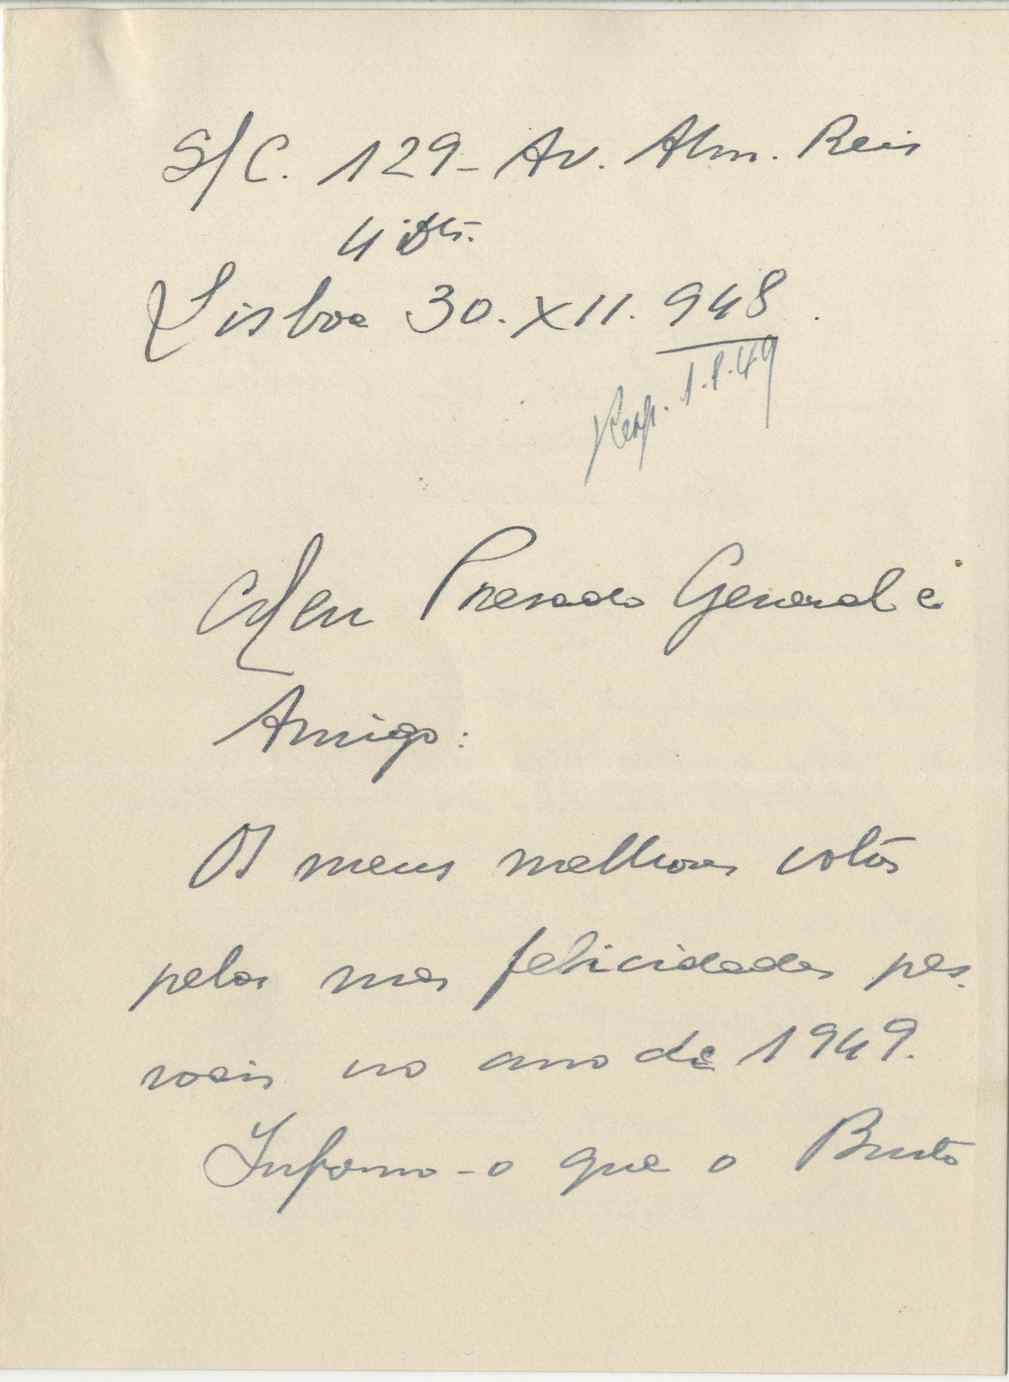 S/C. 129 - Av. Alm. Reis
4º Dtº.
Lisboa 30. XII. 948.
Resp. 1.1.49
Meu Presado General e
Amigo:
Os meus melhores votos
pelas suas felicidades pes-
soais no ano de 1949.
Informo-o que o Busto